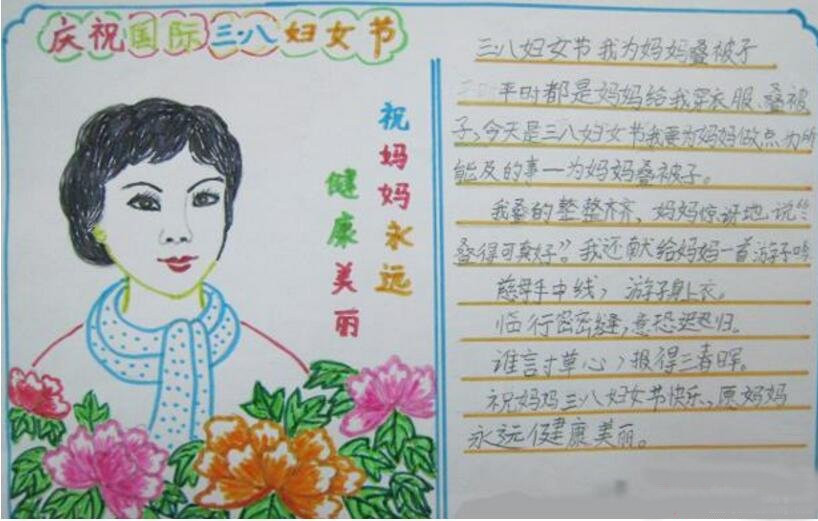 庆祝国际三八妇女节
祝妈妈永远
健康美丽
三八妇女节我为妈妈叠被子
平时都是妈妈给我穿衣服、叠被
子,今天是三八妇女节我要为妈妈做点力所
能及的事一为妈妈叠被子。
我叠的整整齐齐、妈妈惊讶地说“
叠得可真好”。我还献给妈妈一首游子吟
慈母手中线,游子身上衣。
临行密密缝,意恐迟迟归。
谁言寸草心,报得三春晖。
祝妈妈三八妇女节快乐、愿妈妈
永远健康美丽。